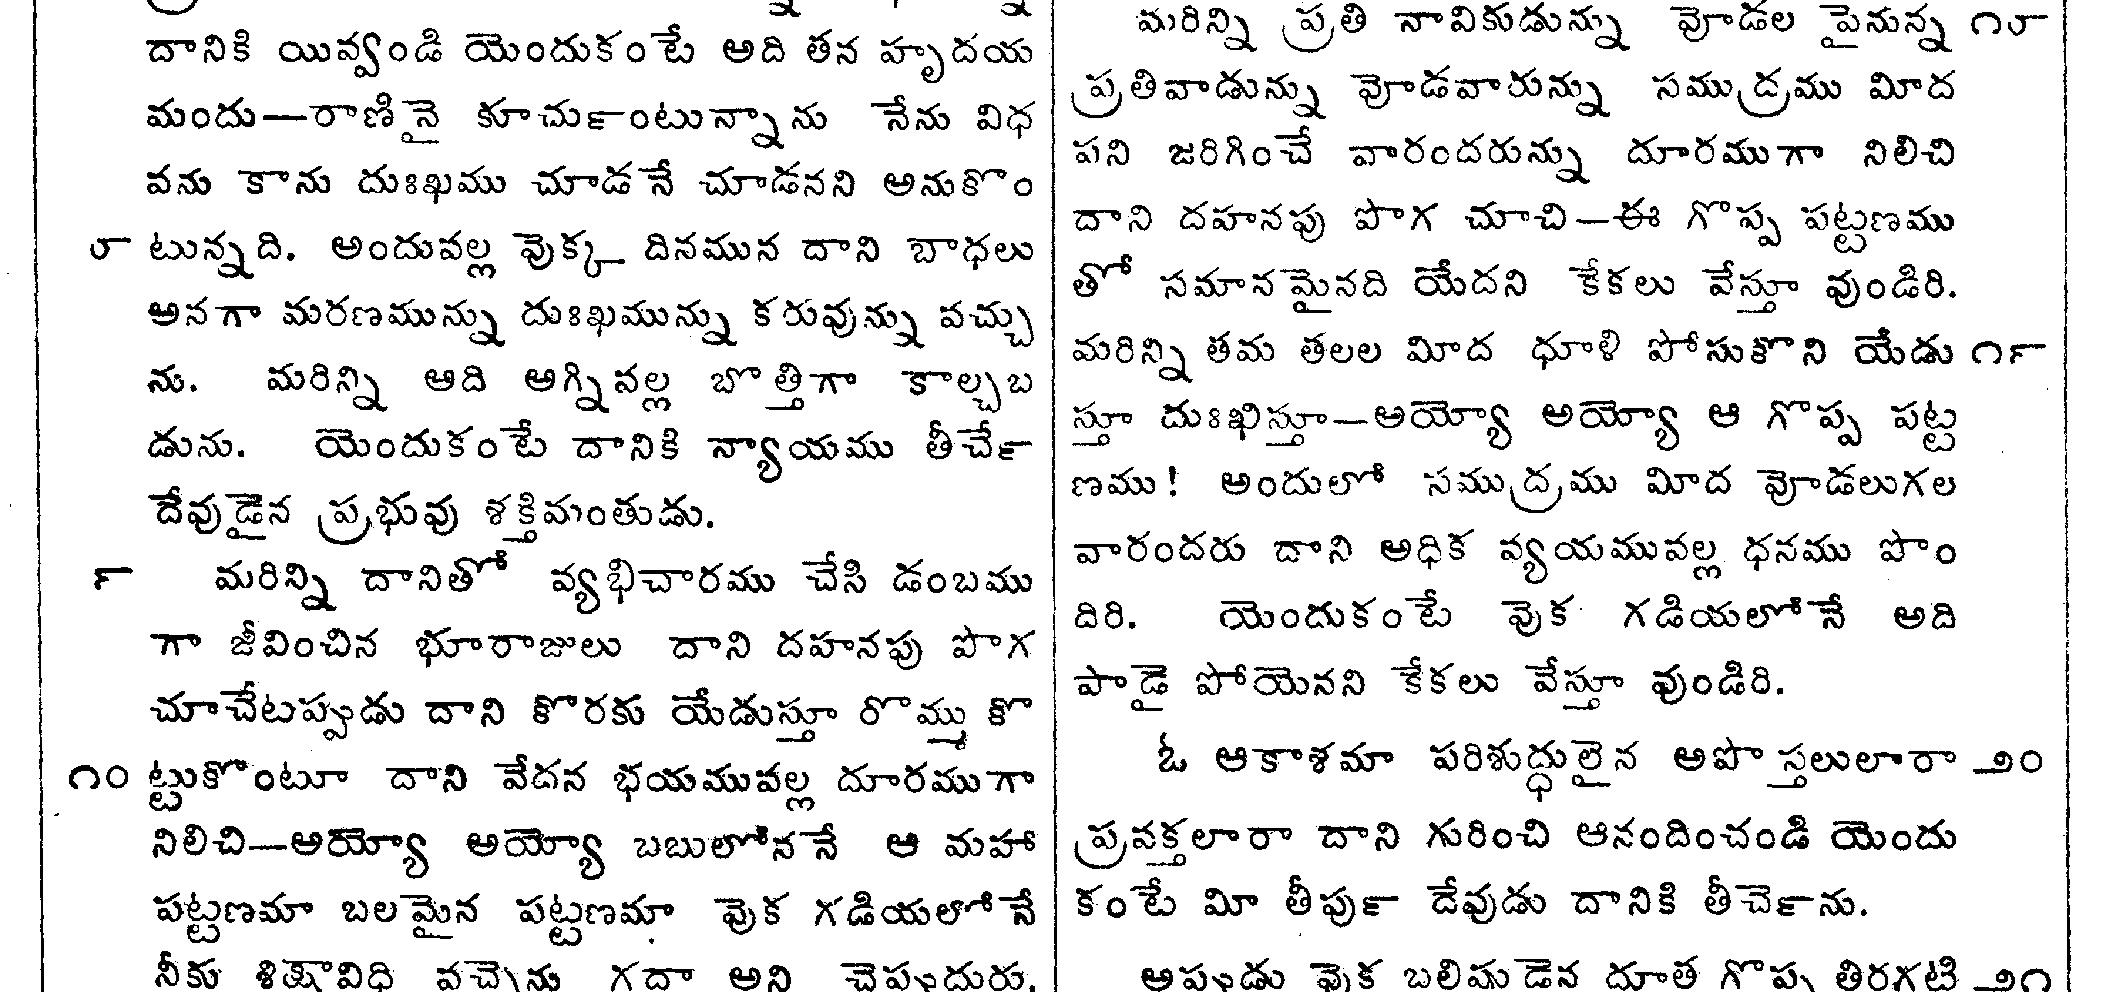 దానికి యివ్వండి యెందుకంటే అది తన హృదయ
మందు—రాణినై కూచుఁటున్నాను నేను విధ
వను కాను దుఃఖము చూడనే చూడనని అనుకొం
౮ టున్నది. అందువల్ల వొక్క దినమున దాని బాధలు
అనగా మరణమున్ను దుఃఖమున్ను కరువున్ను వచ్చు
ను. మరిన్ని ఆది అగ్నివల్ల బొత్తిగా కాల్చబ
డును. యెందుకంటే దానికి న్యాయము తీచే౯
దేవుడైన ప్రభువు శక్తిమంతుడు.
౯ మరిన్ని దానితో వ్యభిచారము చేసి డంబము
గా జీవించిన భూరాజులు దాని దహనపు పొగ
చూచేటప్పుడు దాని కొరకు యేడుస్తూ రొమ్ము కొ
౧౦ ట్టుకొంటూ దాని వేదన భయమువల్ల దూరముగా
నిలిచి—అయ్యో అయ్యో బబులోననే ఆ మహా
పట్టణమా బలమైన పట్టణమా వొక గడియలోనే
నీకు శిక్షావిధి వచ్చెను గదా అని చెప్పుదురు.
మరిన్ని ప్రతి నావికుడున్ను వోడల పైనున్న ౧౮
ప్రతివాడున్ను వోడవారున్ను సముద్రము మీద
పని జరిగించే వారందరున్ను దూరముగా నిలిచి
దాని దహనపు పొగ చూచి—ఈ గొప్ప పట్టణము
తో సమానమైనది యేదని కేకలు వేస్తూ వుండిరి.
మరిన్ని తమ తలల మీద ధూళి పోసుకొని యేడు ౧౯
స్తూ దుఃఖిస్తూ—అయ్యో అయ్యో ఆ గొప్ప పట్ట
ణము! అందులో సముద్రము మీద వోడలుగల
వారందరు దాని అధిక వ్యయమువల్ల ధనము పొం
దిరి. యెందుకంటే వొక గడియలోనే అది
పాడై పోయెనని కేకలు వేస్తూ వుండిరి.
ఓ ఆకాశమా పరిశుద్ధులైన అపొస్తలులారా ౨౦
ప్రవక్తలారా దాని గురించి ఆనందించండి యెందు
కంటే మీ తీపు౯ దేవుడు దానికి తీచె౯ను.
అప్పుడు వొక బలిష్ఠుడైన దూత గొప్ప తిరగటి ౨౧